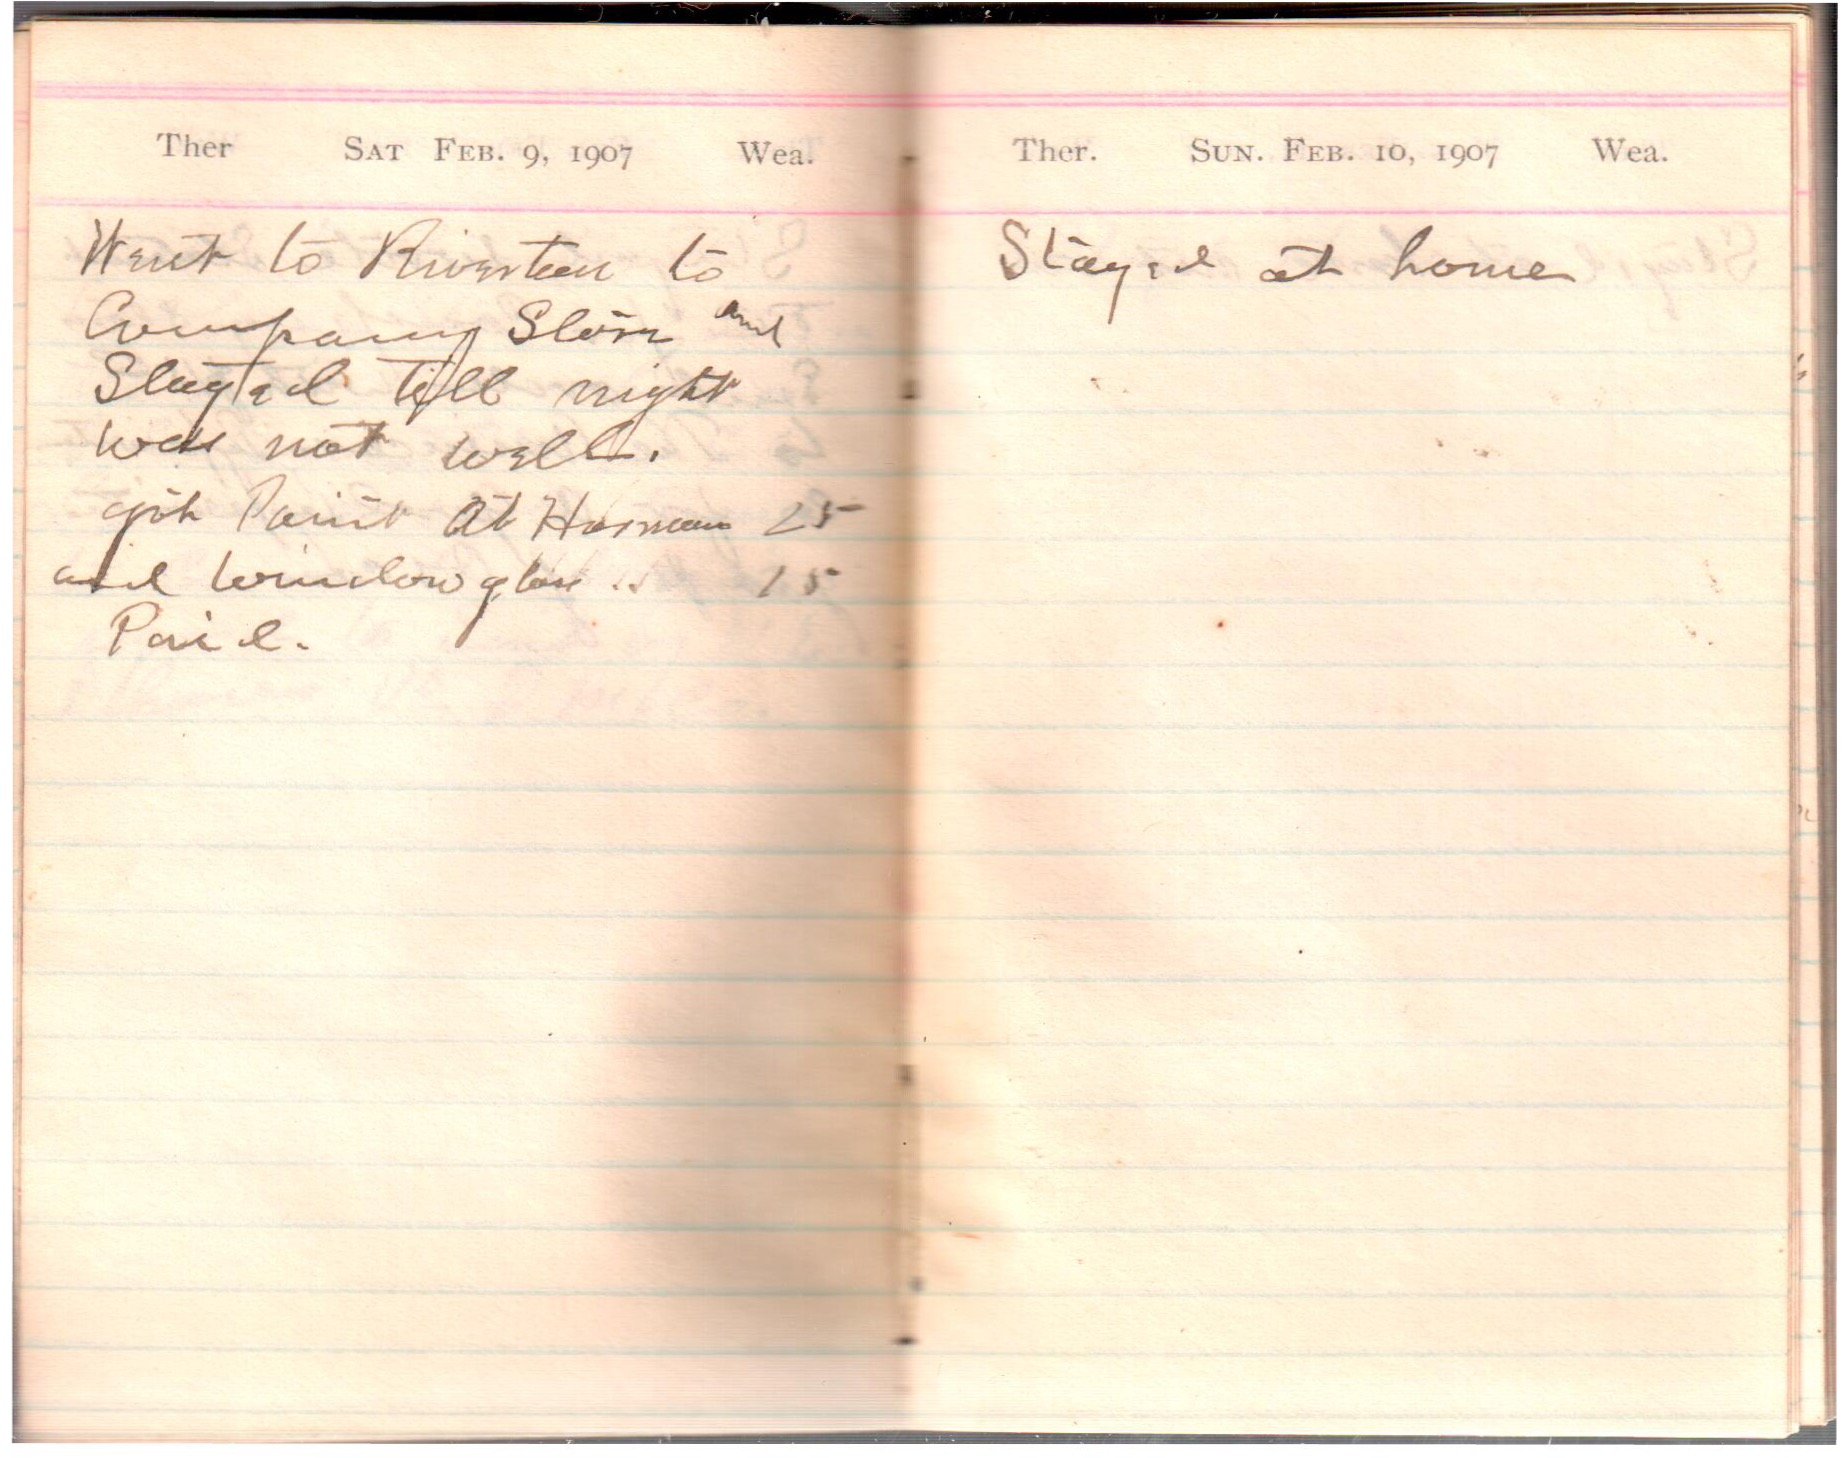 Ther Sat Feb. 9, 1907 Wea.
Went to Riverton to
Company Store and
Stayed till night
was not well.
got Paint At Harman 25
and window glass " 15
Paid.
Ther. Sun. Feb. 10, 1907 Wea.
Stayed at home